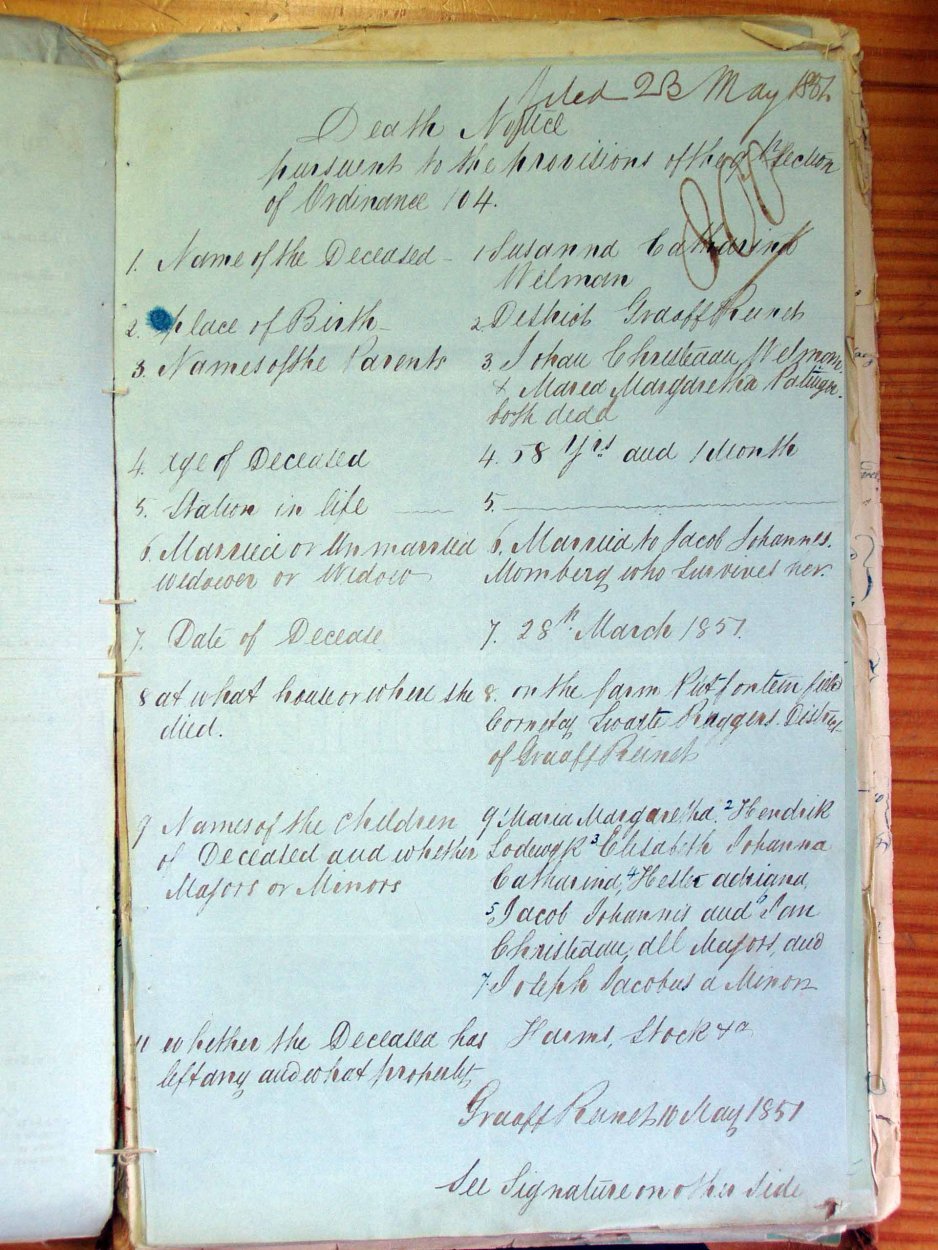 filed 23 May 1851
Death Notice
pursuant to the provisions of the 9th Section
of Ordinance 104.
1. Name of the Deceased - 1 Susanna Catharina
Welman
2. Place of Birth - 2 District Graaff Reinet
3. Names of the Parents 3. Johan Christiaan Welman
& Maria Margaretha
both dead
4. Age of Deceased 4. 58 Yrs and 1 Month
5. Station in life 5.
6. Married or Unmarried 6. Married to Jacob Johannes
widower or Widow Momberg who survives her.
7. Date of Decease 7. 28th March 1851.
8 at what house or where she 8. on the farm Putfontein field
died. Cornetcy Swarte Ruggens District
of Graaff Reinet
9 Names of the Children 9 1 Maria Margaretha, 2 Hendrik
of Deceased and whether Lodewyk 3 Elisabeth Johanna
Majors or Minors Catharina, 4 Hester adriana,
5 Jacob Johannis and 6 Jan
Christiaan, all Majors, and
7. Joseph Jacobus a Minor
11 whether the Deceased has Farms, Stock &a
left any and what property
Graaff Reinet 10 May 1851
See Signature on other Side